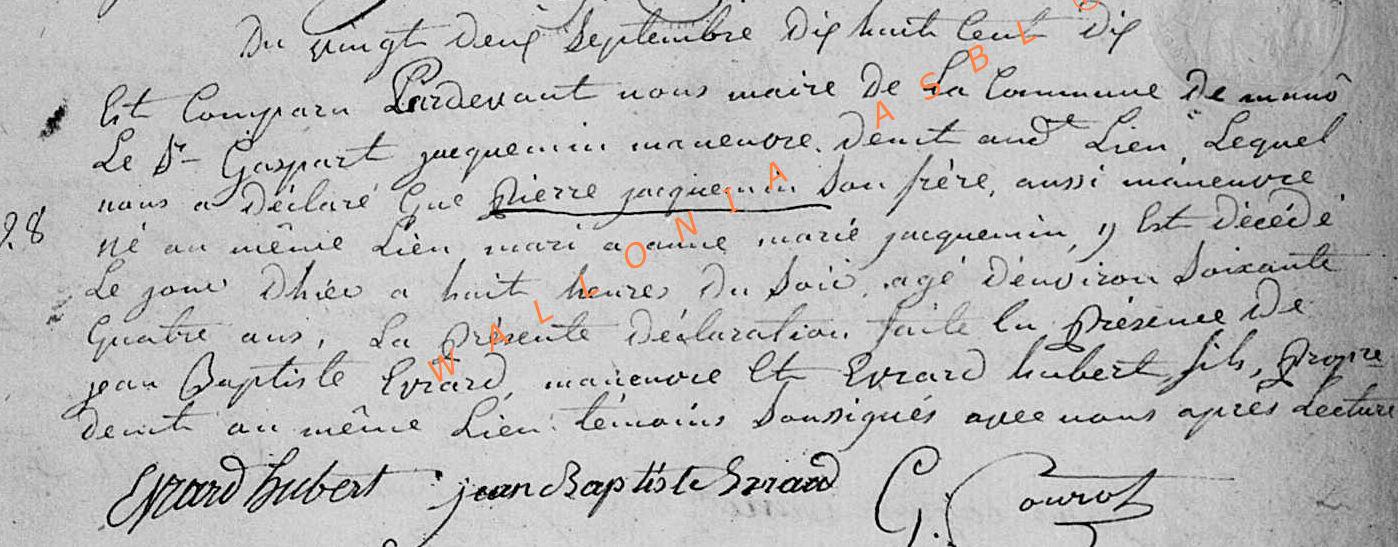 Du vingt deux Septembre dix huit Cent dix
Est Comparu Pardevant nous maire De La Commune De mano
Le Sr Gaspart jacquemin maneuvre demt audt Lieu, Lequel
nous a Déclaré Que pierre jacquemin Son frère, aussi maneuvre
28
né au même Lieu, mari a anne marie jacquemin, y Est décédé
Le jour D'hier a huit heures Du Soir, agé d'environ Soixante
Quatre ans, La présente Déclaration faite En présence De
jean Baptiste Evrard, maneuvre Et Evrard hubert fils, propre
demt au même Lieu témoins Soussignés avec nous après Lecture
Evrard hubert jean Baptiste Evrard G.
WALLONIA ASBL